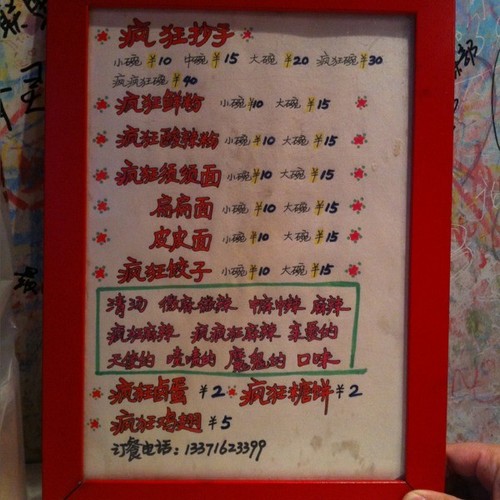 疯狂抄手
小碗¥10 中碗¥15 大碗¥20 疯狂碗¥30
疯疯狂碗¥40
疯狂鲜粉 小碗¥10 大碗¥15
疯狂酸辣粉 小碗¥10 大碗¥15
疯狂须须面 小碗¥10 大碗¥15
扁扁面 小碗¥10 大碗¥15
皮皮面 小碗¥10 大碗¥15
疯狂饺子 小碗¥10 大碗¥15
清汤 微麻微辣 中麻中辣 麻辣
疯狂麻辣 疯疯狂麻辣 亲爱的
天使的 嘻嘻的 魔鬼的 口味
疯狂卤蛋 ¥2 疯狂糖饼 ¥2
疯狂鸡翅 ¥5
订餐电话：13371623399